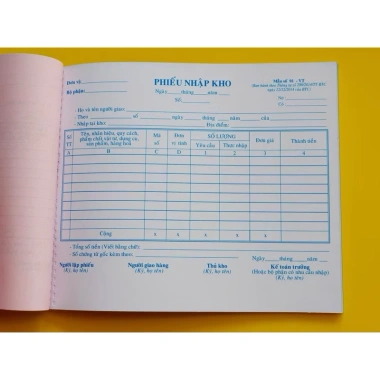 Đơn vị:
Bộ phận:
PHIẾU NHẬP KHO
Ngày tháng năm
Số
Mẫu số 01 - VT
Nợ
Có
- Họ và tên người giao:
- Theo số ngày tháng năm của
- Nhập tại kho: Địa điểm:
Số TT
Tên, nhãn hiệu, quy cách, phẩm chất, vật tư, dụng cụ, sản phẩm, hàng hoá
Mã số
Đơn vị tính
SỐ LƯỢNG
Yêu cầu
Thực nhập
Đơn giá
Thành tiền
A B C D 1 2 3 4
Cộng x x x x x
- Tổng số tiền (Viết bằng chữ):
- Số chứng từ gốc kèm theo:
Ngày tháng năm
Người lập phiếu
(Ký, họ tên)
Người giao hàng
(Ký, họ tên)
Thủ kho
(Ký, họ tên)
Kế toán trưởng
(Hoặc bộ phận có nhu cầu nhập)
(Ký, họ tên)